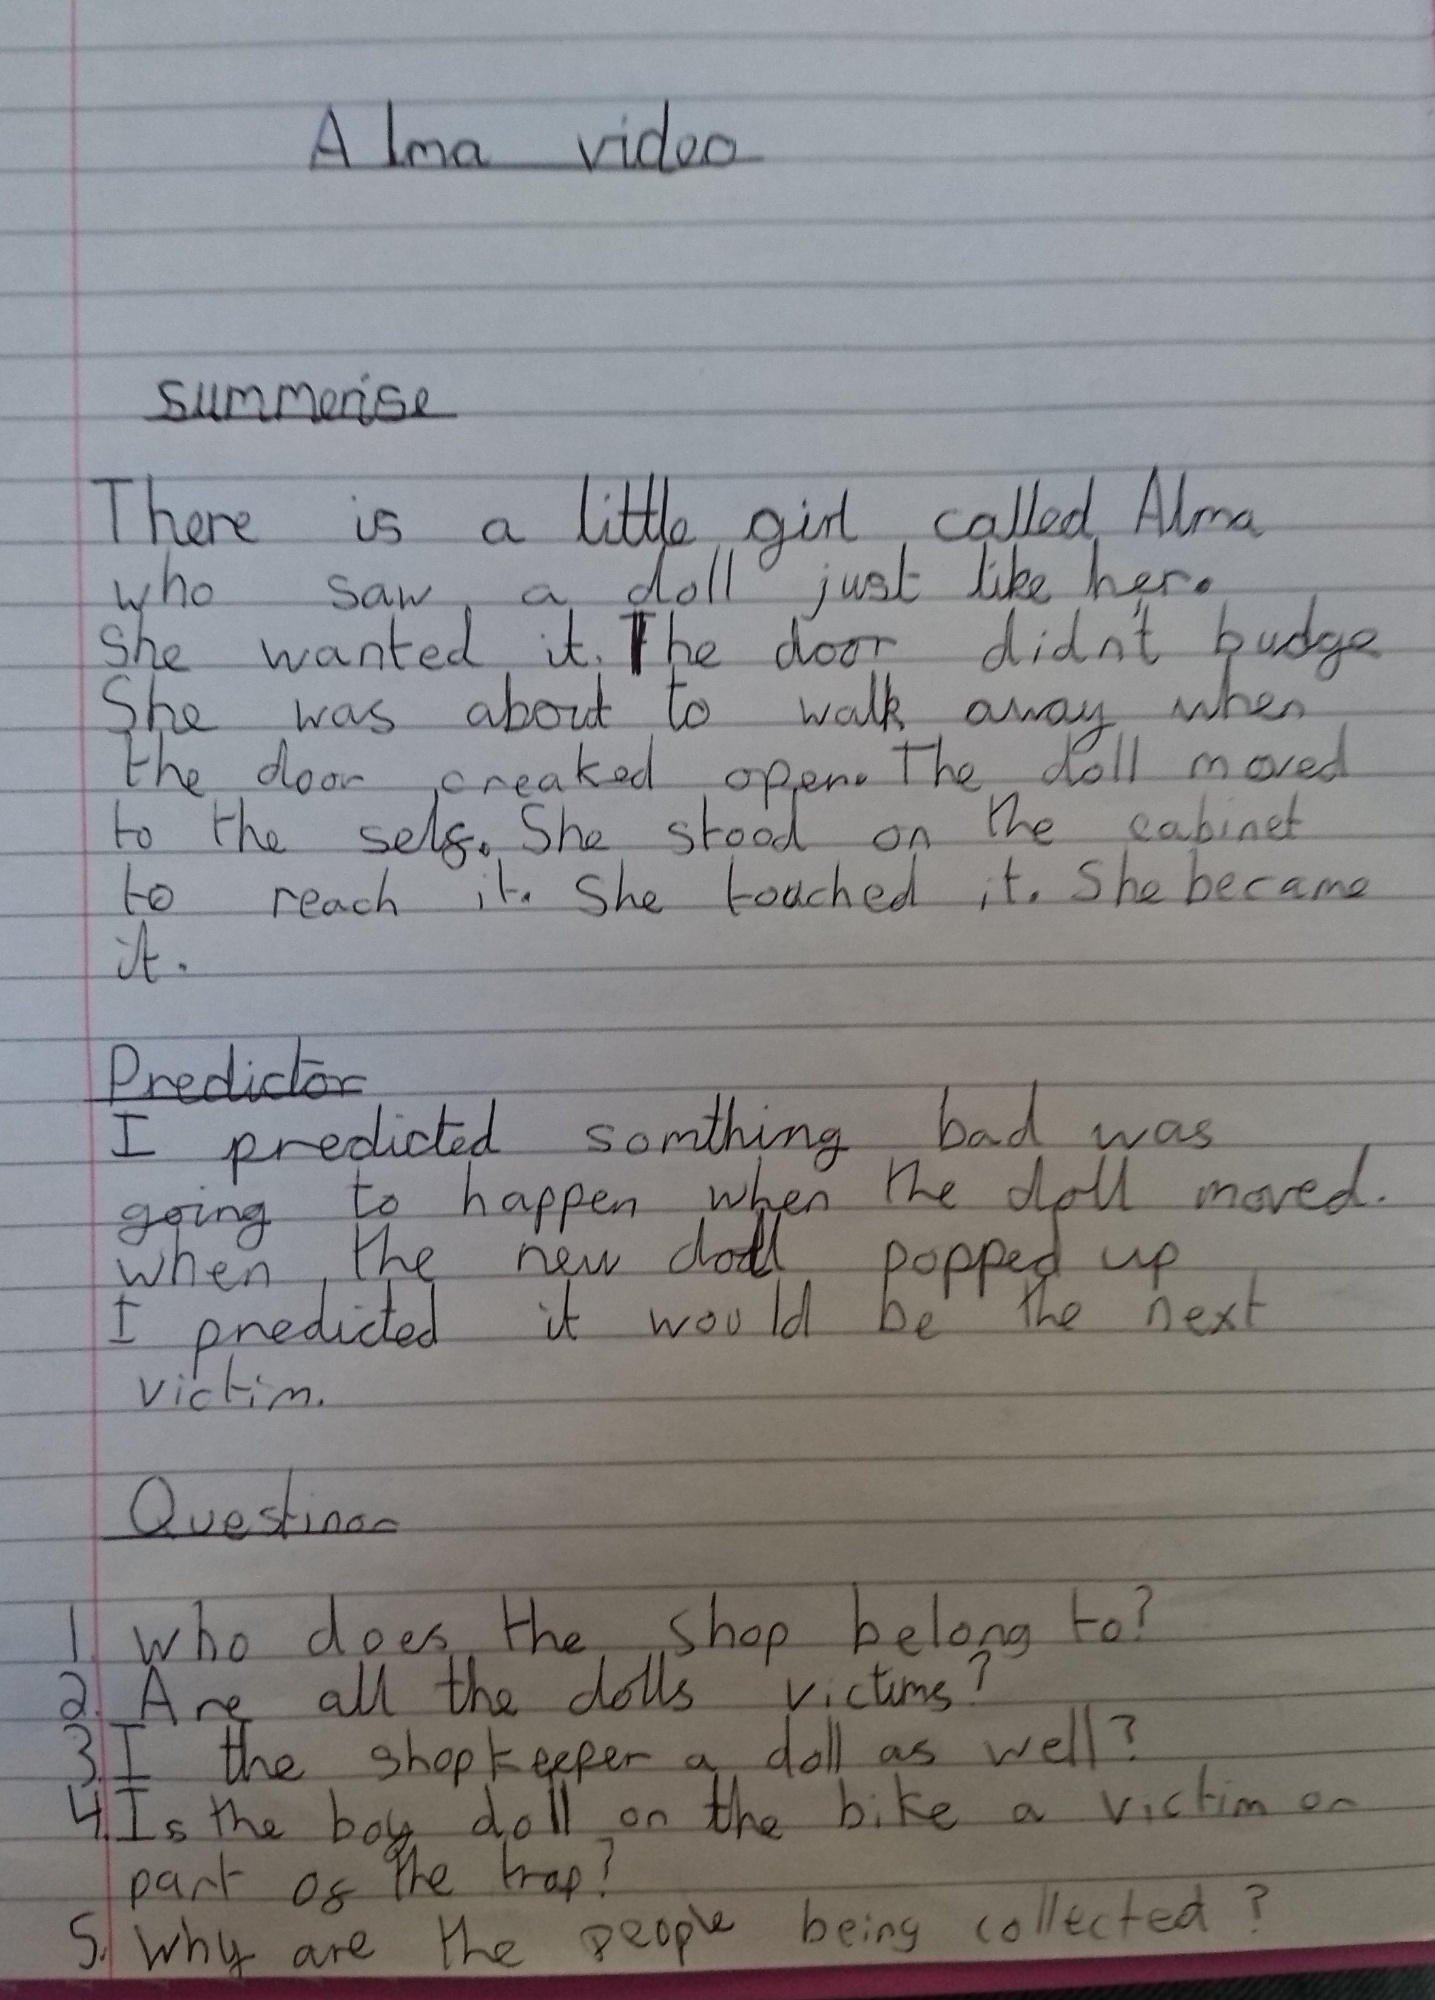 Alma video
summerise
There is a little girl called Alma
who saw a doll just like her.
She wanted it. The door didn't budge
She was about to walk away when
the door creaked open. The doll moved
to the self. She stood on the cabinet
to reach it. She touched it. She became
it.
Predictor
I predicted somthing bad was
going to happen when the doll moved.
when the new doll popped up
I predicted it would be the next
victim.
Questinor
1. Who does the shop belong to?
2. Are all the dolls victims?
3. I the shopkeeper a doll as well?
4. Is the boy doll on the bike a victim or
part of the trap?
5. Why are the people being collected?